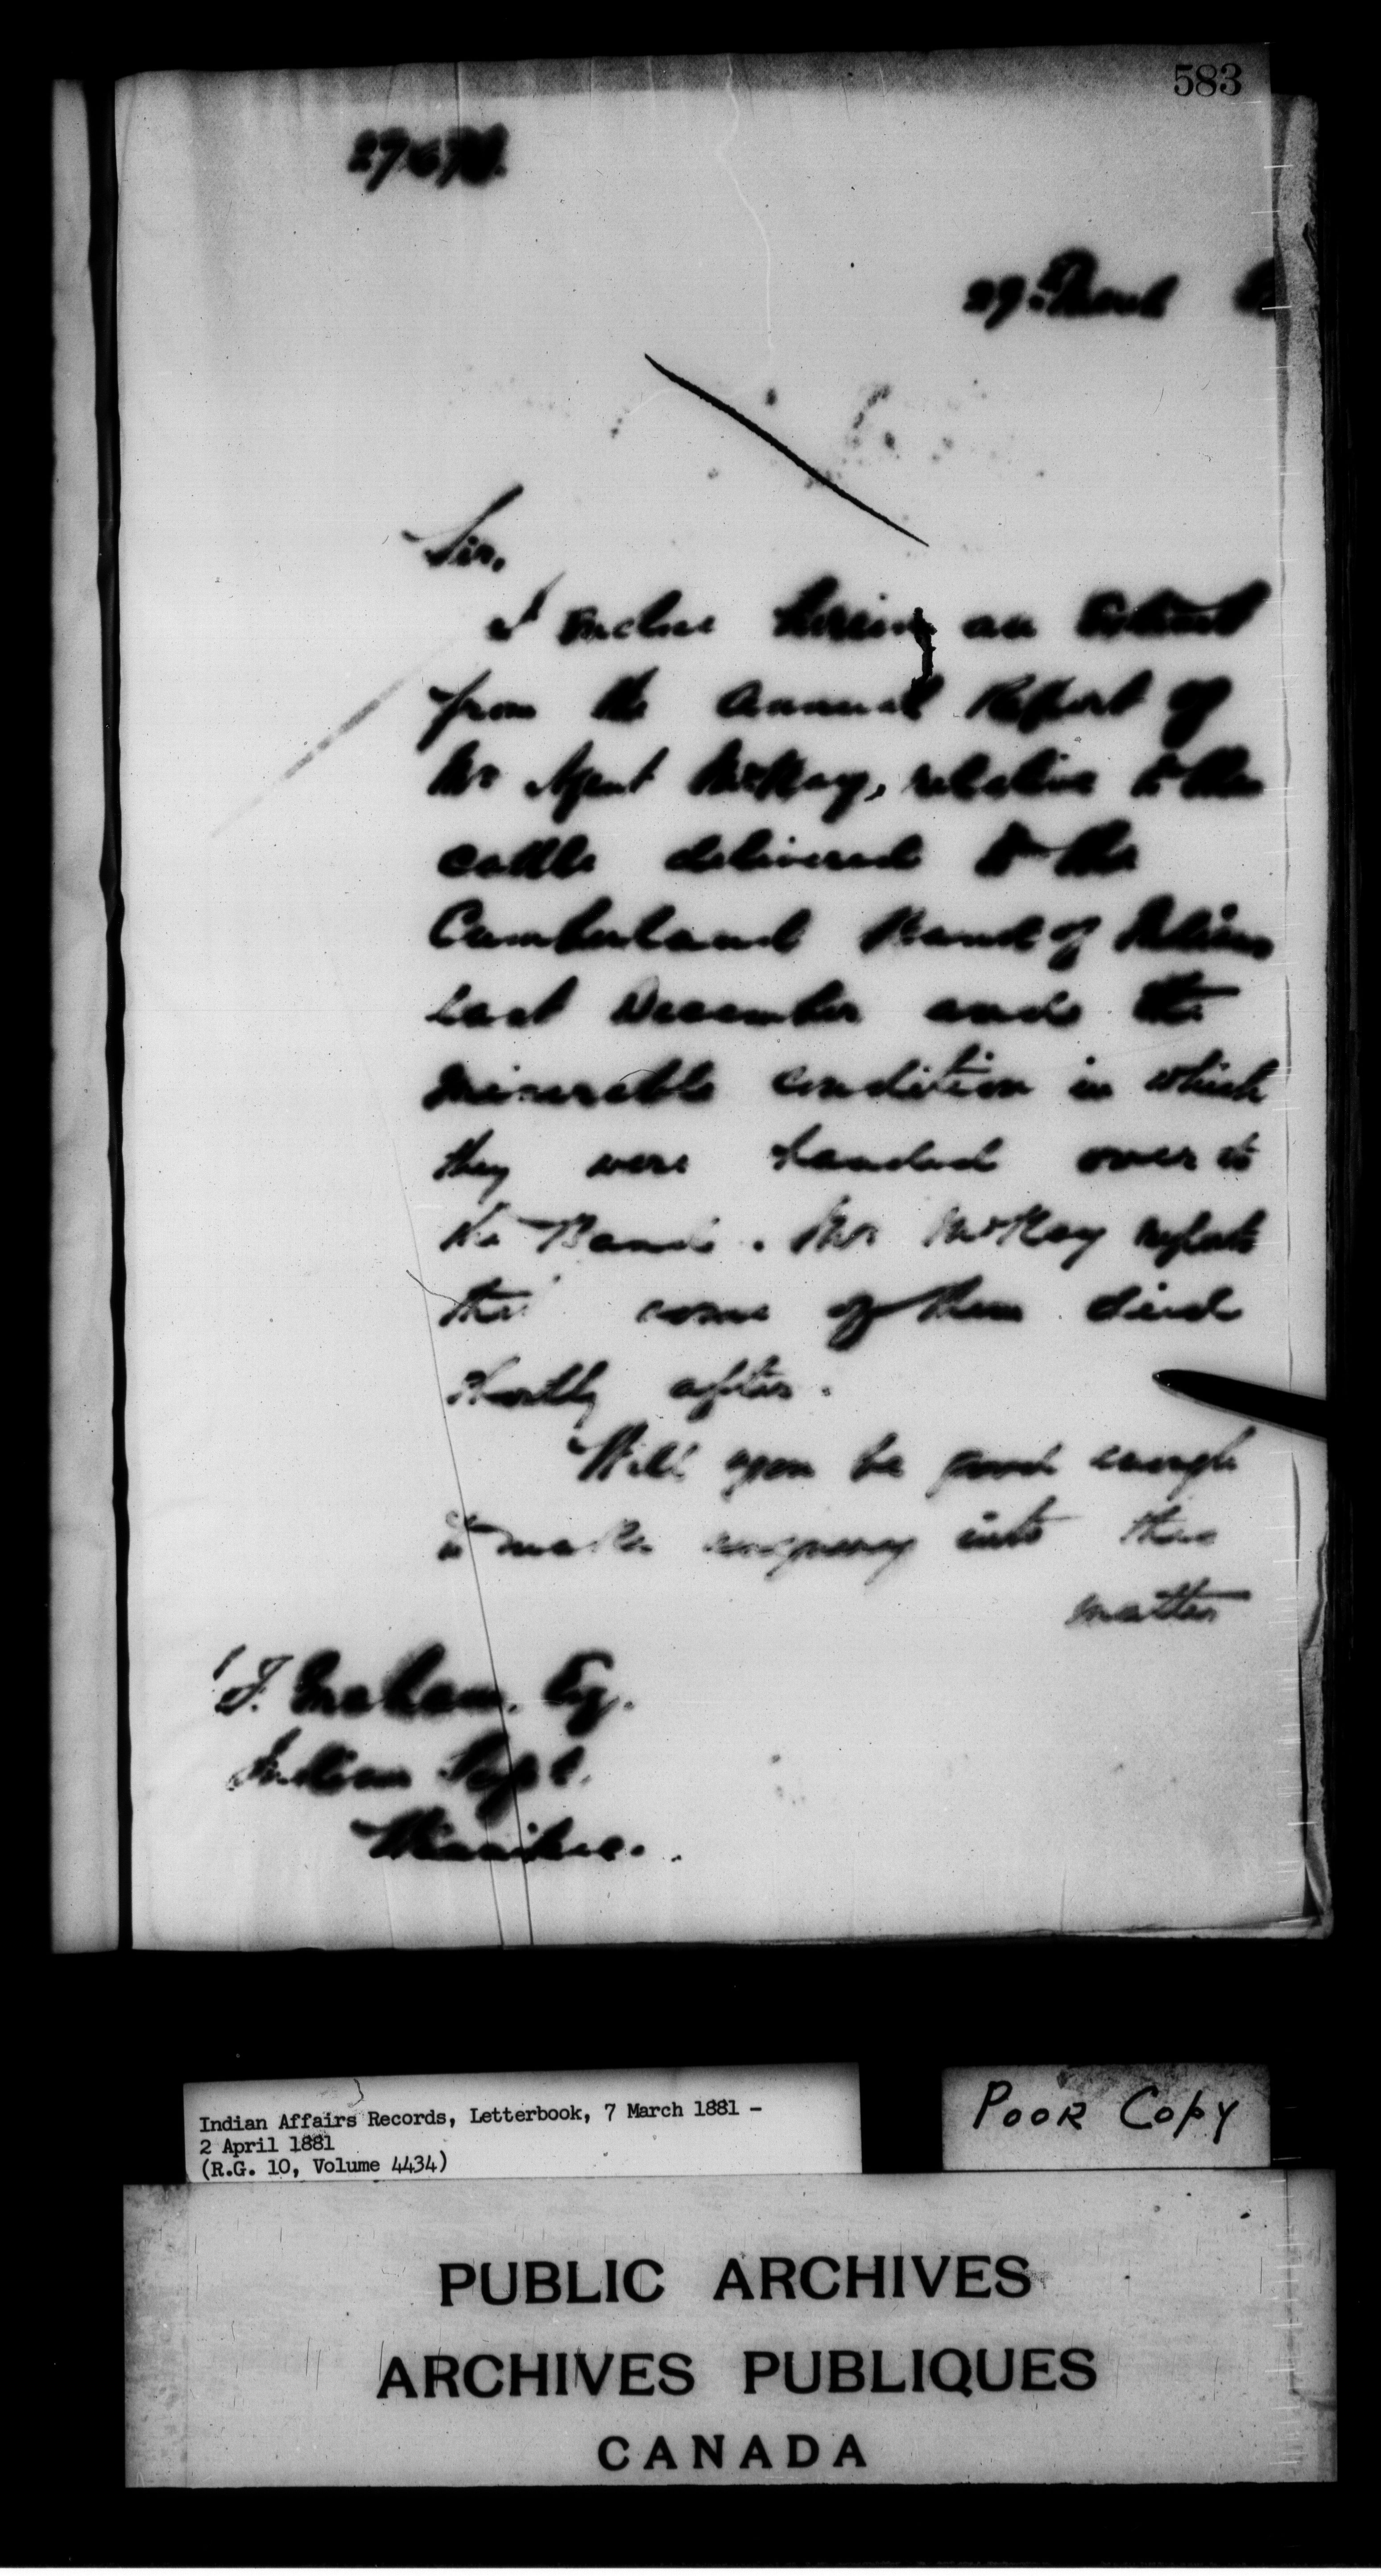 583
29th March
Sir,
I enclose herein an Extract
from the Annual Report of
Mr Agent McKay, relative to the
cattle delivered to the
Cumberland Band of Indians
last December and the
miserable condition in which
they were handed over to
the Band. Mr McKay reports
that some of them died
shortly after.
Will you be good enough
to make enquiry into this
matter
J. Graham, Esq.
Indian Supt.
Winnipeg.
Indian Affairs Records, Letterbook, 7 March 1881 -
2 April 1881
(R.G. 10, Volume 4434)
POOR COPY
PUBLIC ARCHIVES
ARCHIVES PUBLIQUES
CANADA